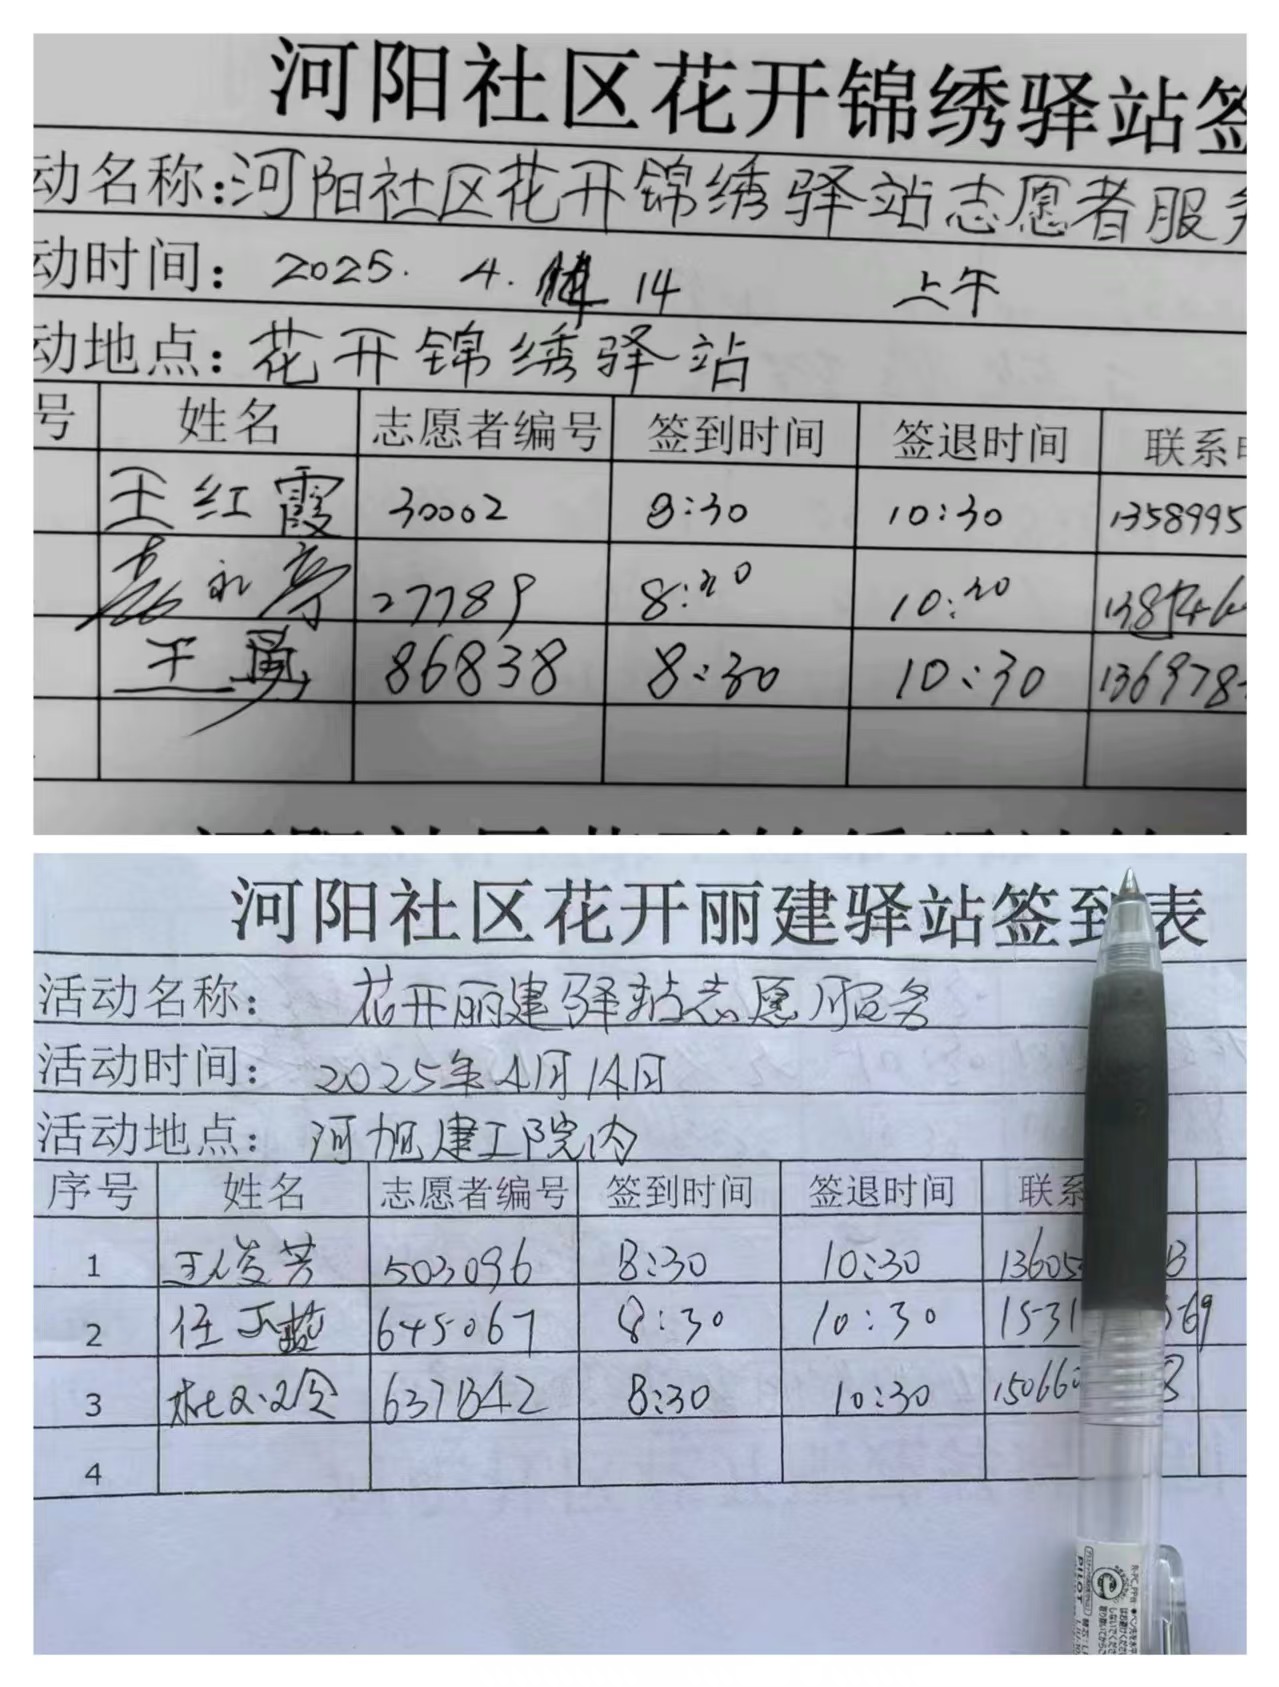 河阳社区花开锦绣驿站签
动名称:河阳社区花开锦绣驿站志愿者服务
动时间: 2025. 4. 14 上午
动地点:花开锦绣驿站
号 姓名 志愿者编号 签到时间 签退时间 联系
王红霞 30002 8:30 10:30 1358995
27789
王勇 86838 8:30 10:30 136978
河阳社区花开丽建驿站签到表
活动名称: 花开丽建驿站志愿服务
活动时间: 2025年4月14日
活动地点: 河旭建工院内
序号 姓名 志愿者编号 签到时间 签退时间 联系
1 王俊芳 503096 8:30 10:30 13605
2 任 645067 8:30 10:30 1531 569
3 637842 8:30 10:30 15066
4
PILOT